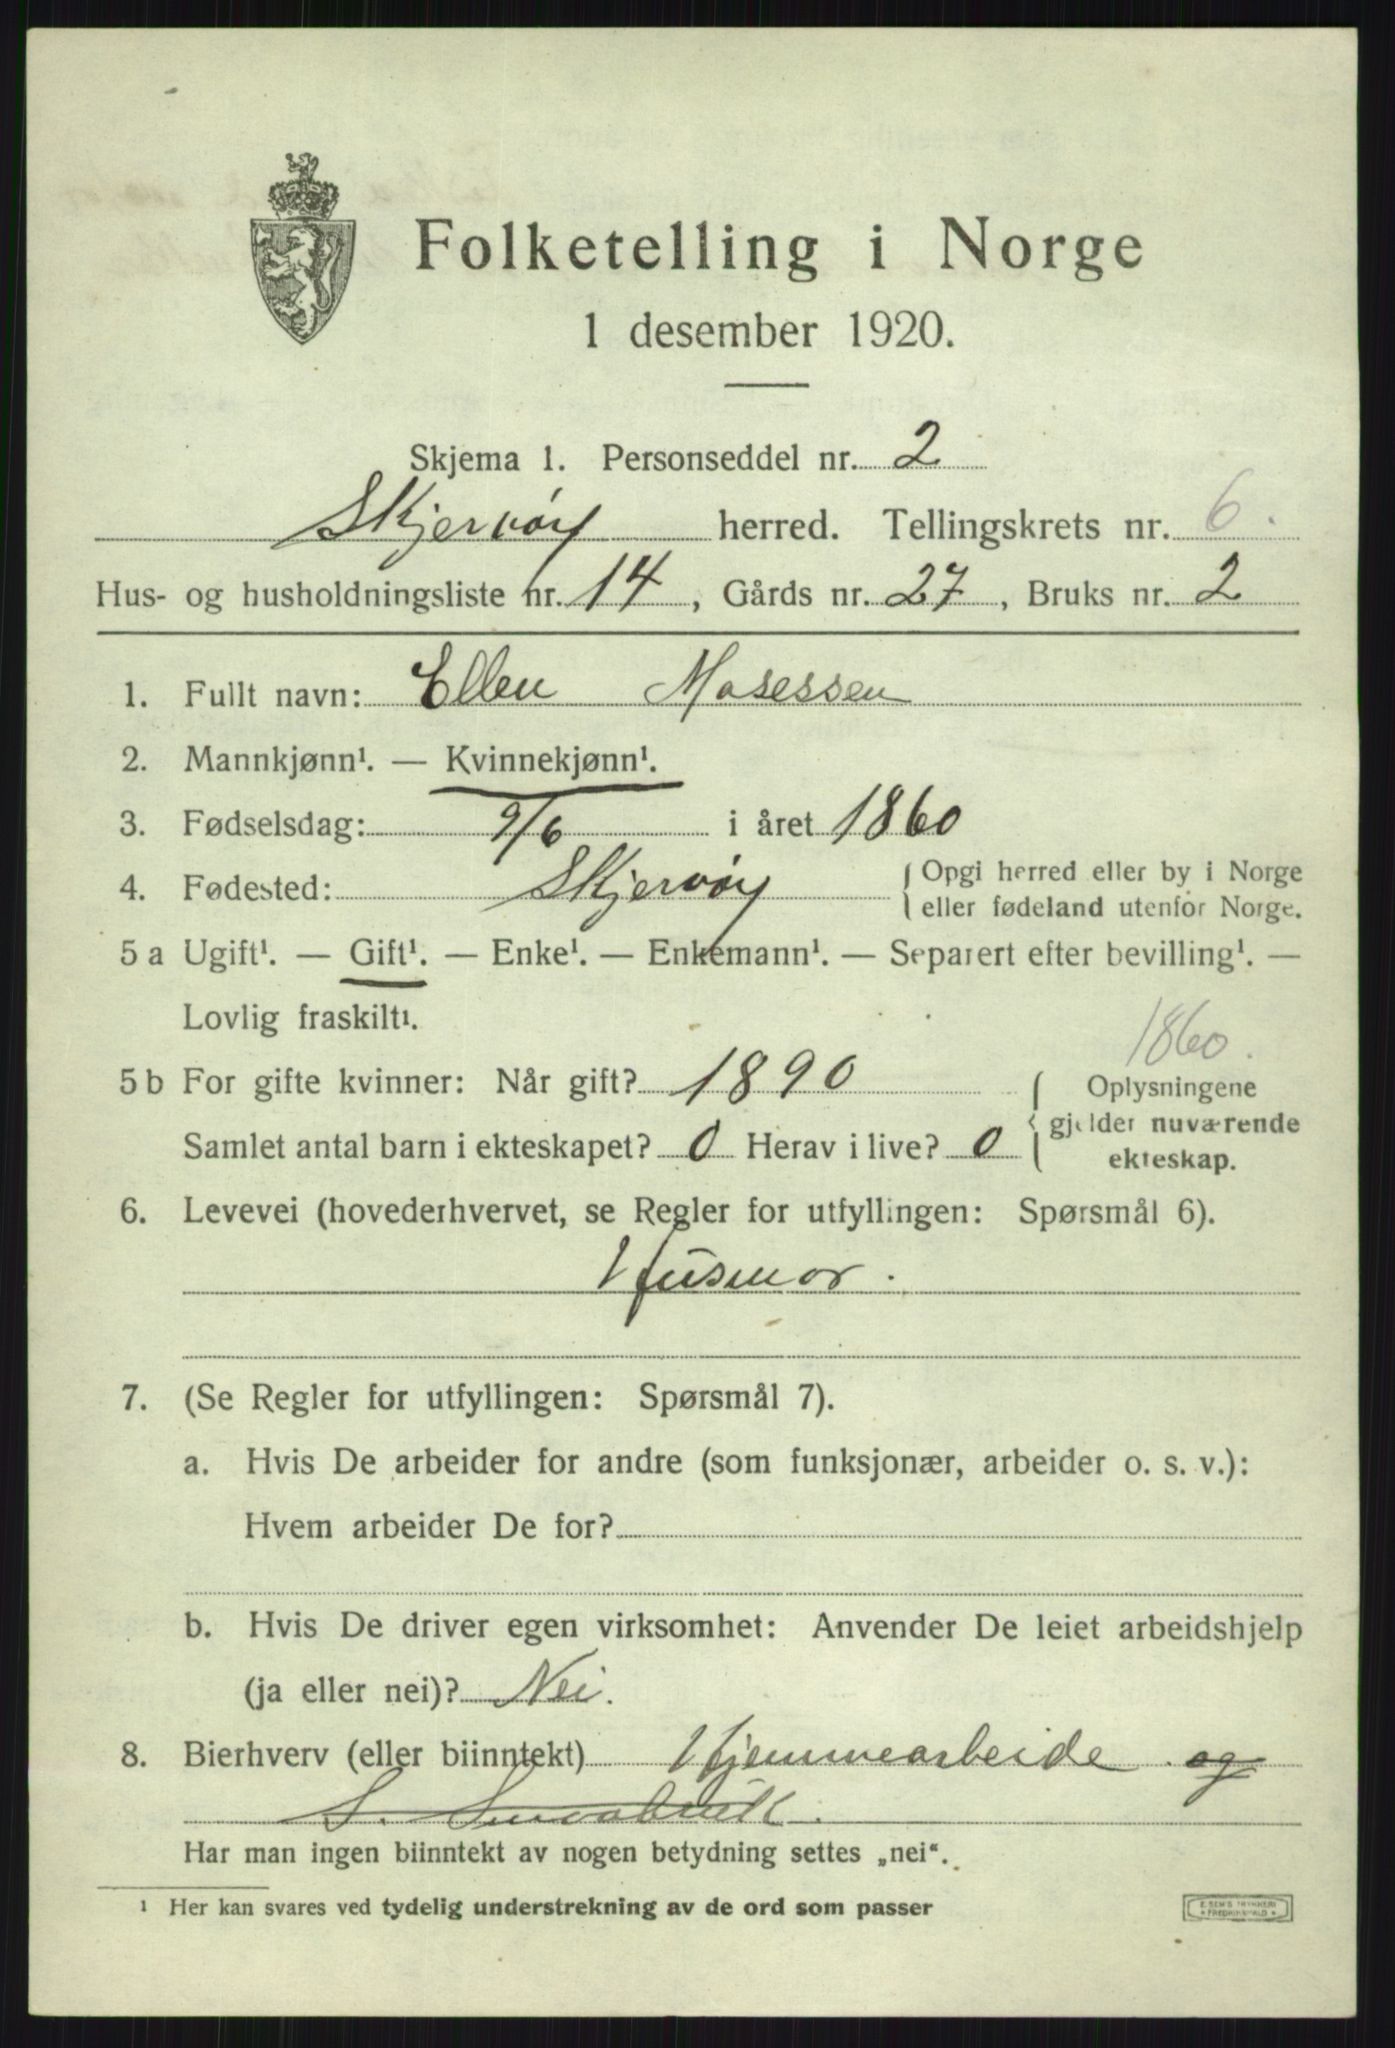 Folketelling i Norge
1 desember 1920.
Skjema 1. Personseddel nr. 2
Skjervöy herred. Tellingskrets nr. 6.
Hus- og husholdningsliste nr. 14, Gårds nr. 27, Bruks nr. 2
1. Fullt navn: Ellen Mosessen
2. Mannkjønn¹. — Kvinnekjønn¹.
3. Fødselsdag: 9/6 i året 1860
4. Fødested: Skjervöy { Opgi herred eller by i Norge
eller fødeland utenfor Norge.
5 a Ugift¹. — Gift¹. — Enke¹. — Enkemann¹. — Separert efter bevilling¹. —
Lovlig fraskilt¹.
1860.
5 b For gifte kvinner: Når gift? 1890 { Oplysningene
gjelder nuværende
Samlet antal barn i ekteskapet? 0 Herav i live? 0
ekteskap.
6. Levevei (hovederhvervet, se Regler for utfyllingen: Spørsmål 6).
Husmor.
7. (Se Regler for utfyllingen: Spørsmål 7).
a. Hvis De arbeider for andre (som funksjonær, arbeider o. s. v.):
Hvem arbeider De for?
b. Hvis De driver egen virksomhet: Anvender De leiet arbeidshjelp
(ja eller nei)? Nei.
8. Bierhverv (eller biinntekt) Hjemmearbeide og
S. Smaabruk.
Har man ingen biinntekt av nogen betydning settes „nei“.
¹ Her kan svares ved tydelig understrekning av de ord som passer